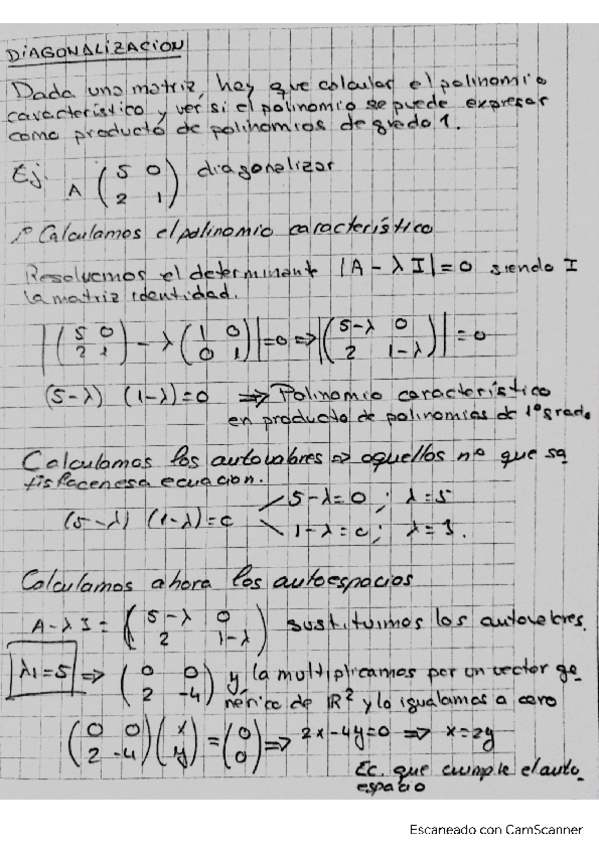 DIAGONALIZACION
Dada una matriz, hay que calcular el polinomio
característico y ver si el polinomio se puede expresar
como producto de polinomios de grado 1.
Ej: A (5 0 / 2 1) diagonalizar
1º Calculamos el polinomio característico
Resolvemos el determinant |A - λI| = 0 siendo I
la matriz identidad.
|(5 0 / 2 1) - λ (1 0 / 0 1)| = 0 => |(5-λ 0 / 2 1-λ)| = 0
(5-λ) (1-λ) = 0 => Polinomio característico
en producto de polinomios de 1º grado
Calculamos los autovalores => aquellos nº que sa
tisfacen esa ecuacion.
(5-λ) (1-λ) = 0
5-λ=0; λ=5
1-λ=0; λ=1.
Calculamos ahora los autoespacios
A-λI = (5-λ 0 / 2 1-λ) sustituimos los autovalores.
λ1=5 => (0 0 / 2 -4) y la multiplicamos por un vector ge_
nérico de R² y lo igualamos a cero
(0 0 / 2 -4) (x / y) = (0 / 0) => 2x-4y=0 => x=2y
Ec. que cumple el auto_
espacio
Escaneado con CamScanner